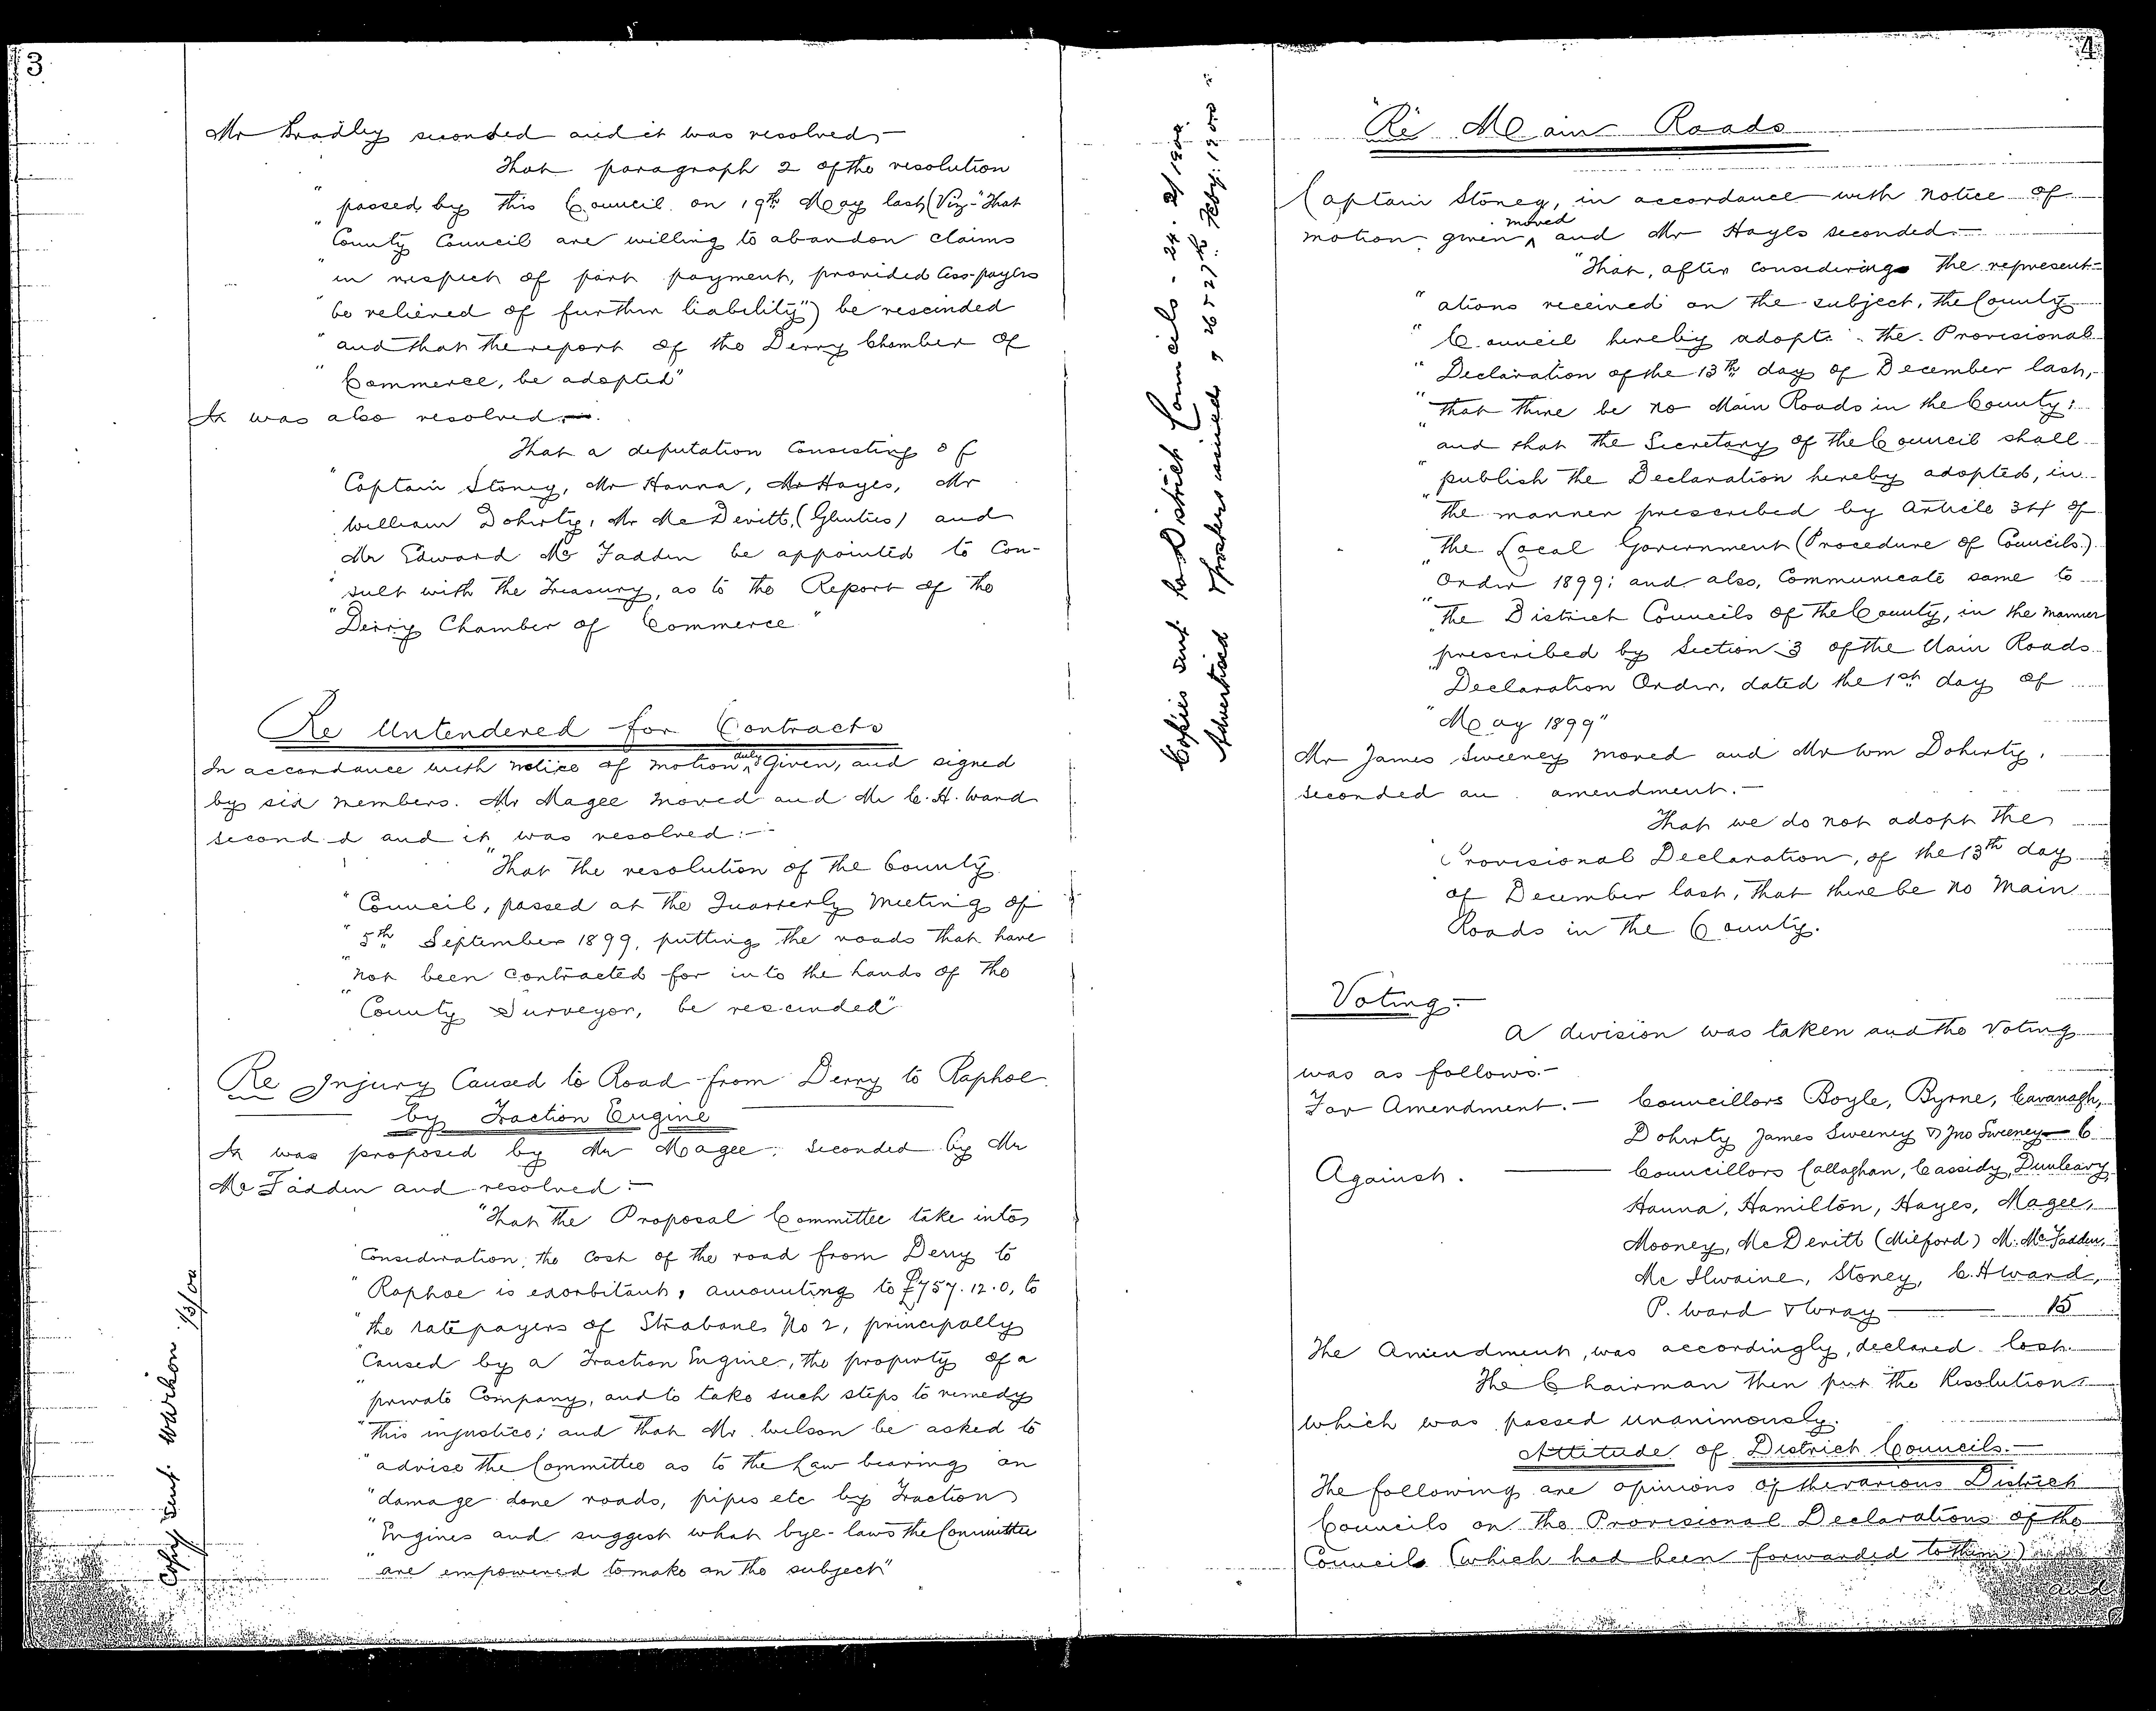 3
Mr Bradley seconded and it was resolved,—
That paragraph 2 of the resolution
" passed by this Council on 19th May last (Viz—"That
" County Council are willing to abandon claims
" in respect of part payment, provided Cess-payers
" be relieved of further liability") be rescinded
" and that the report of the Derry Chamber of
" Commerce, be adopted"
It was also resolved.—
That a deputation Consisting of
" Captain Stoney, Mr Hanna, Mr Hayes, Mr
" William Doherty, Mr McDevitt, (Glenties) and
" Mr Edward McFadden be appointed to Con-
" sult with the Treasury, as to the Report of the
" Derry Chamber of Commerce "
Re Untendered for Contracts
In accordance with notice of motion duly Given, and signed
by six members. Mr Magee moved and Mr C. H. Ward
second d and it was resolved:—
"That the resolution of the County
" Council, passed at the Quarterly Meeting of
" 5th September 1899, putting the roads that have
" not been Contracted for into the hands of the
" County Surveyor, be rescinded"
Re Injury Caused to Road from Derry to Raphoe
by Traction Engine
It was proposed by Mr Magee, seconded by Mr
McFadden and resolved:—
"That the Proposal Committee take into
" Consideration, the cost of the road from Derry to
" Raphoe is exorbitant, amounting to £757.12.0, to
" the ratepayers of Strabane No 2, principally
" Caused by a Traction Engine, the property of a
" private Company, and to take such steps to remedy
" this injustice; and that Mr Wilson be asked to
" advise the Committee as to the Law bearing on
" damage done roads, pipes etc by Traction
" Engines and suggest what bye-laws the Committee
" are empowered to make on the subject"
Copy sent 1/3/00
4
Copies sent to District Councils - 24. 2/1900.
Advertised & Posters issued 26 & 27th Feby: 1900
"Re" Main Roads
Captain Stoney, in accordance with notice of
motion given moved and Mr Hayes seconded—
"That, after considering the represent-
" ations received on the subject, the County
" Council hereby adopt the Provisional
" Declaration of the 13th day of December last,
" that there be no Main Roads in the County:
" and that the Secretary of the Council shall
" publish the Declaration hereby adopted, in
" the manner prescribed by Article 34 of
" the Local Government (Procedure of Councils)
" Order 1899; and also, Communicate same to
" the District Councils of the County, in the manner
" prescribed by Section 3 of the Main Roads
" Declaration Order, dated the 1st day of
" May 1899"
Mr James Sweeney moved and Mr Wm Doherty,
seconded an amendment.—
That we do not adopt the
Provisional Declaration, of the 13th day
of December last, that there be no Main
Roads in the County.
Voting.—
A division was taken and the Voting
was as follows.—
For Amendment.— Councillors Boyle, Byrne, Cavanagh,
Doherty James Sweeney & Jno Sweeney— 6
Against. — Councillors Callaghan, Cassidy, Dunleavy,
Hanna, Hamilton, Hayes, Magee,
Mooney, McDevitt (Milford) M. McFadden,
McIlwaine, Stoney, C. H Ward,
P. Ward & Wray — 15
The Amendment, was accordingly, declared lost.
The Chairman then put the Resolution
which was passed unanimously.
Attitude of District Councils.—
The following are opinions of the various District
Councils on the Provisional Declarations of the
Council (which had been forwarded to them)
and